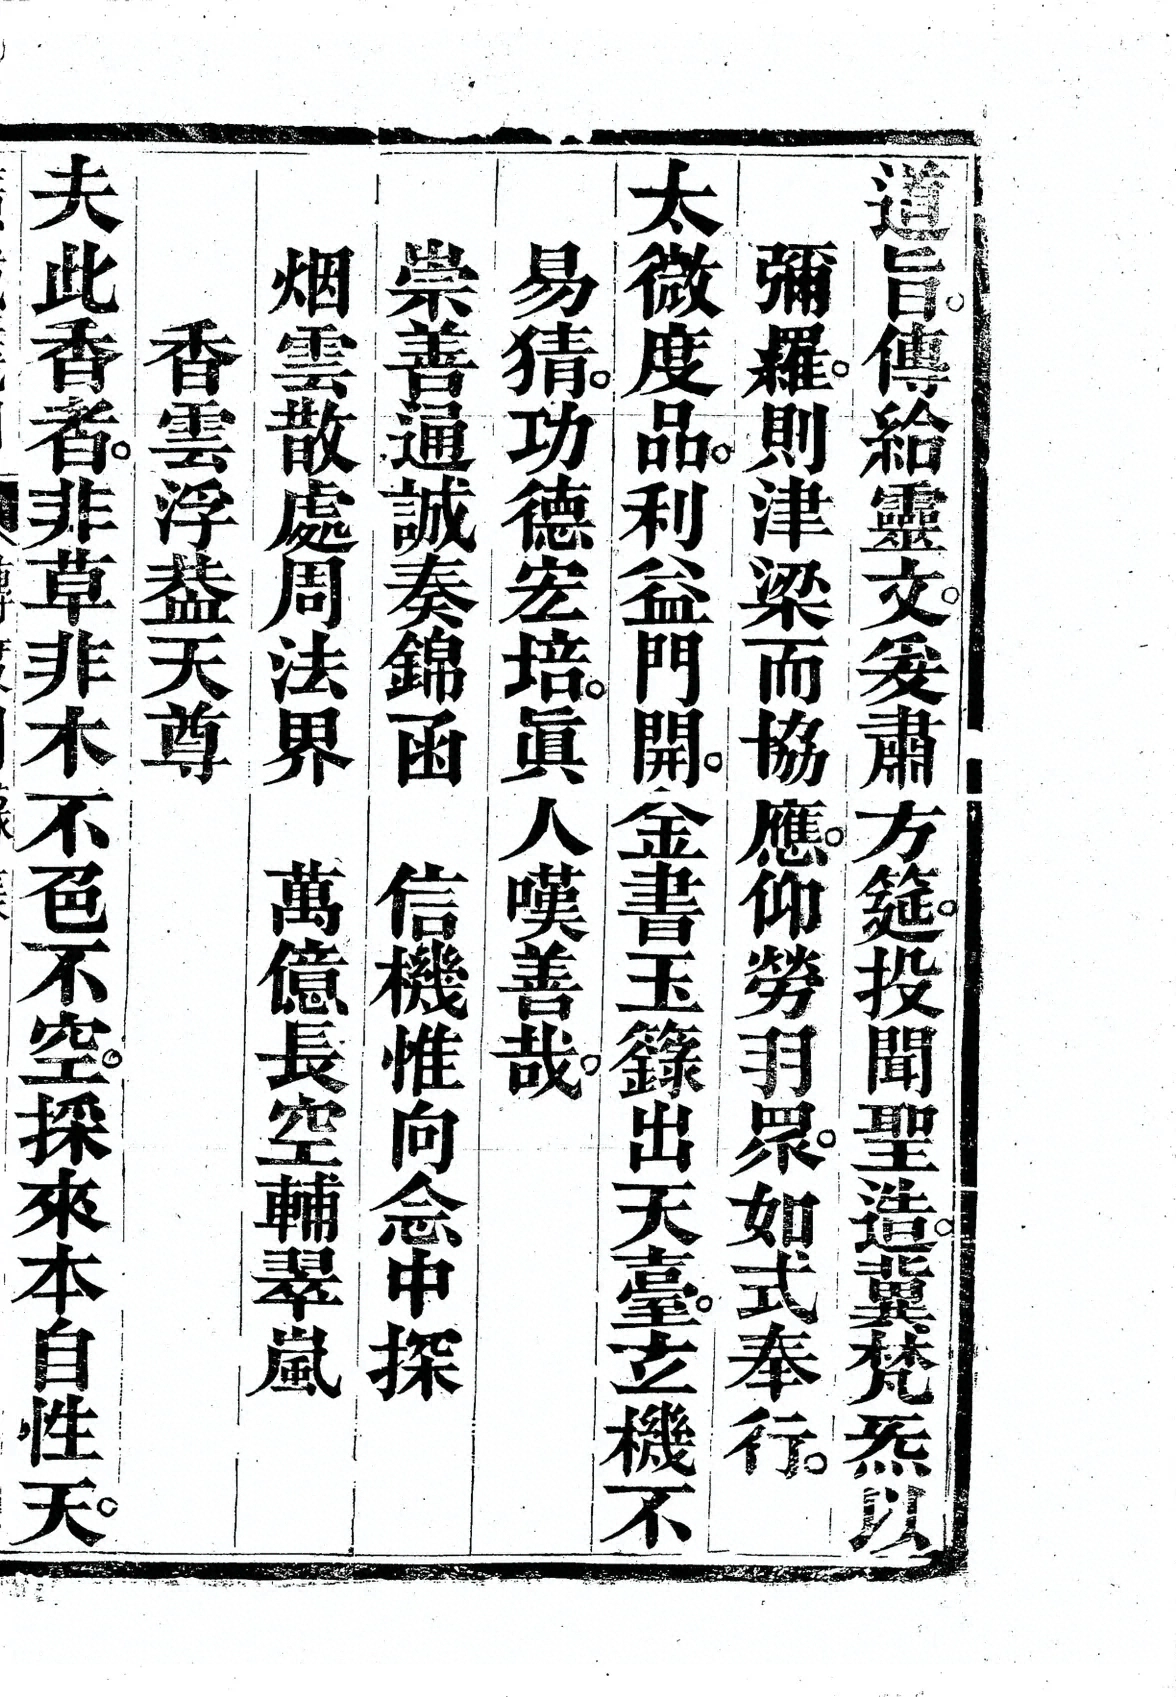 道旨。傳給靈文。爰肅方筵。投聞聖造。冀梵炁以
彌羅。則津梁而協應。仰勞羽眾。如式奉行。
太微度品。利益門開。金書玉籙出天臺。玄機不
易猜。功德宏培。眞人嘆善哉。
崇善通誠奏錦函　信機惟向念中探
烟雲散處周法界　萬億長空輔翠嵐
香雲浮葢天尊
夫此香者。非草非木不色不空。採來本自性天。